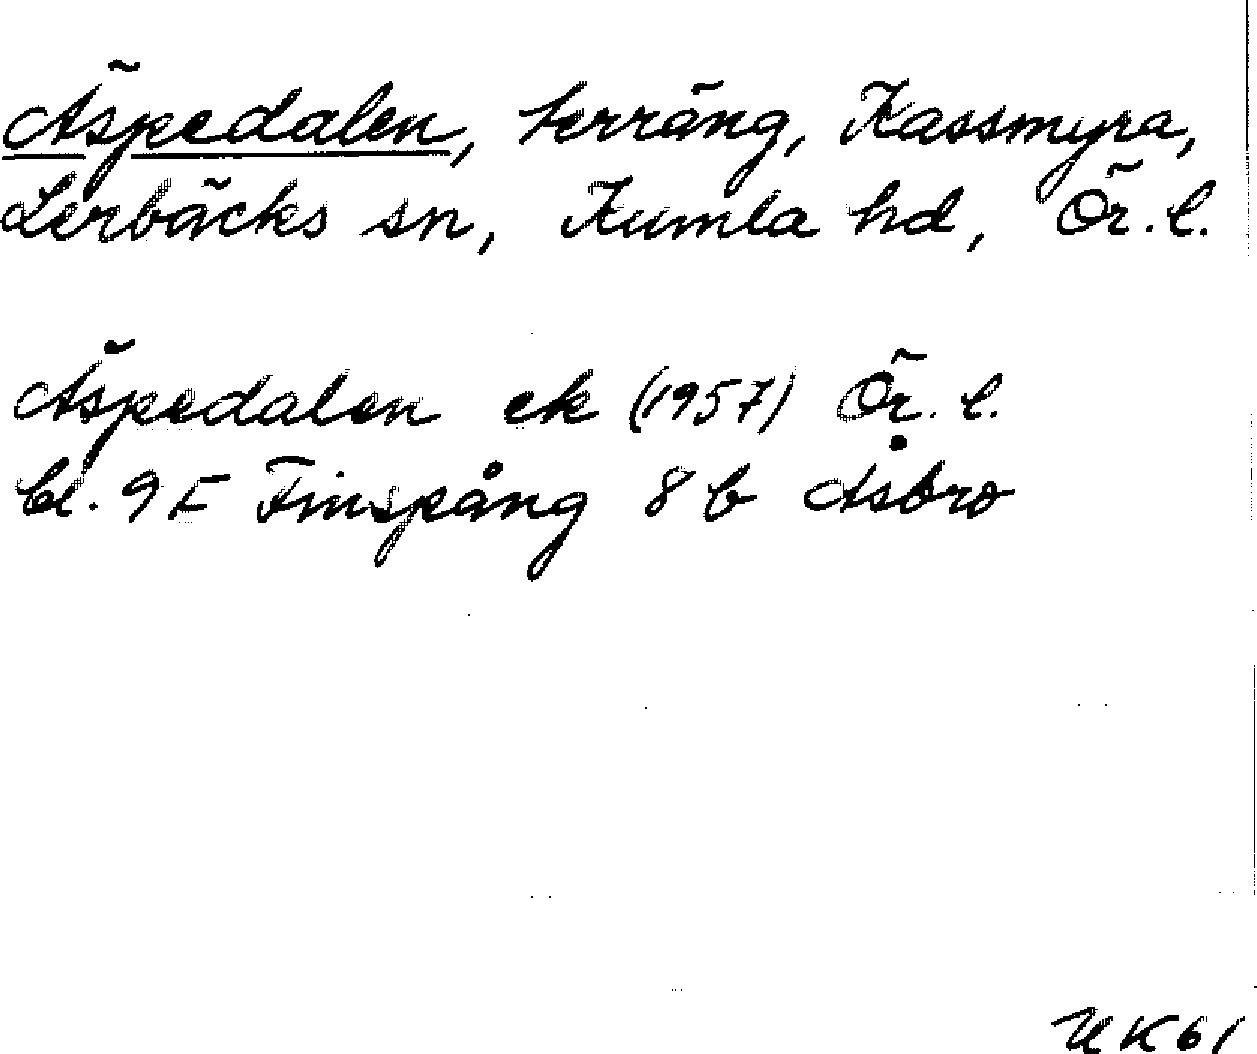 Äspedalen, terräng, Kassmyra,
Lerbäcks sn, Kumla hd, Ör. l.
Äspedalen ek (1957) Ör. l.
bl. 9 F Finspång 8 b Åsbro
UK 61